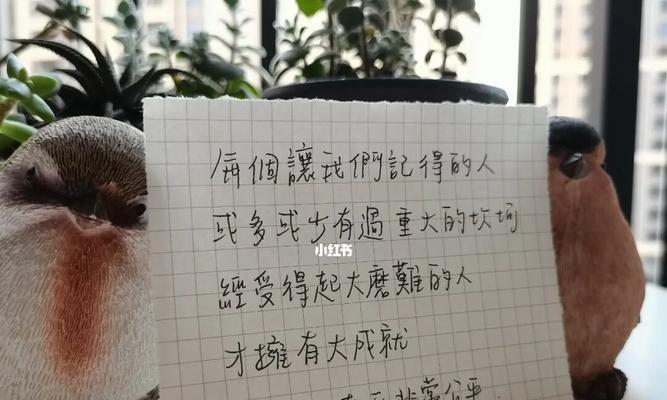 每個讓我們記得的人
或多或少有過重大的坎坷
小红书
經受得起大磨難的人
才擁有大成就
非常公平